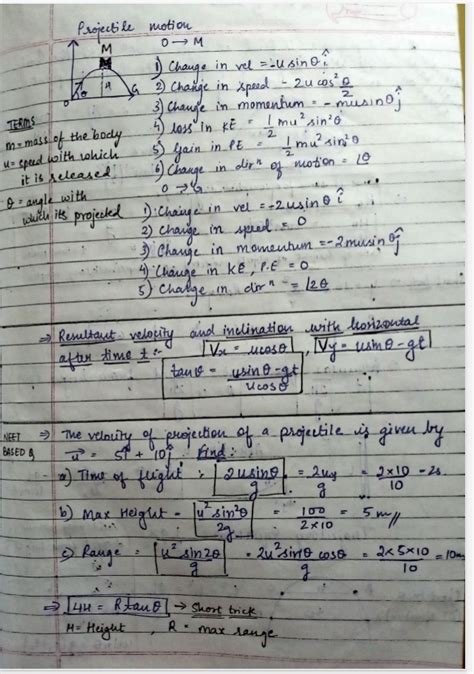 Projectile motion
M
O → M
O
θ
H
G
1) Change in vel = -u sin θ î
2) Change in speed - 2u cos² θ/2
3) Change in momentum = - mu sin θ ĵ
4) loss in KE = 1/2 mu² sin² θ
5) Gain in PE = 1/2 mu² sin² θ
6) Change in dirⁿ of motion = lθ
TERMS
m = mass of the body
u = speed with which
it is released
θ = angle with
which its projected
O → G
1) Change in vel = -2u sin θ î
2) Change in speed = 0
3) Change in momentum = -2mu sin θ ĵ
4) Change in KE, P.E = 0
5) Change in dirⁿ = l2θ
⇒ Resultant velocity and inclination with horizontal
after time t :- Vx = u cos θ, Vy = u sin θ - gt
tan θ = u sin θ - gt / u cos θ
NEET
BASED Q
⇒ The velocity of projection of a projectile is given by
u⃗ = 5î + 10ĵ Find :
a) Time of flight : 2u sin θ / g = 2uy / g = 2×10 / 10 - 2s
b) Max Height - u² sin² θ / 2g = 100 / 2×10 = 5 m //
c) Range = u² sin 2θ / g = 2u² sin θ cos θ / g = 2×5×10 / 10 = 10m
⇒ 4H = R tan θ → Short trick
H = Height, R = max range